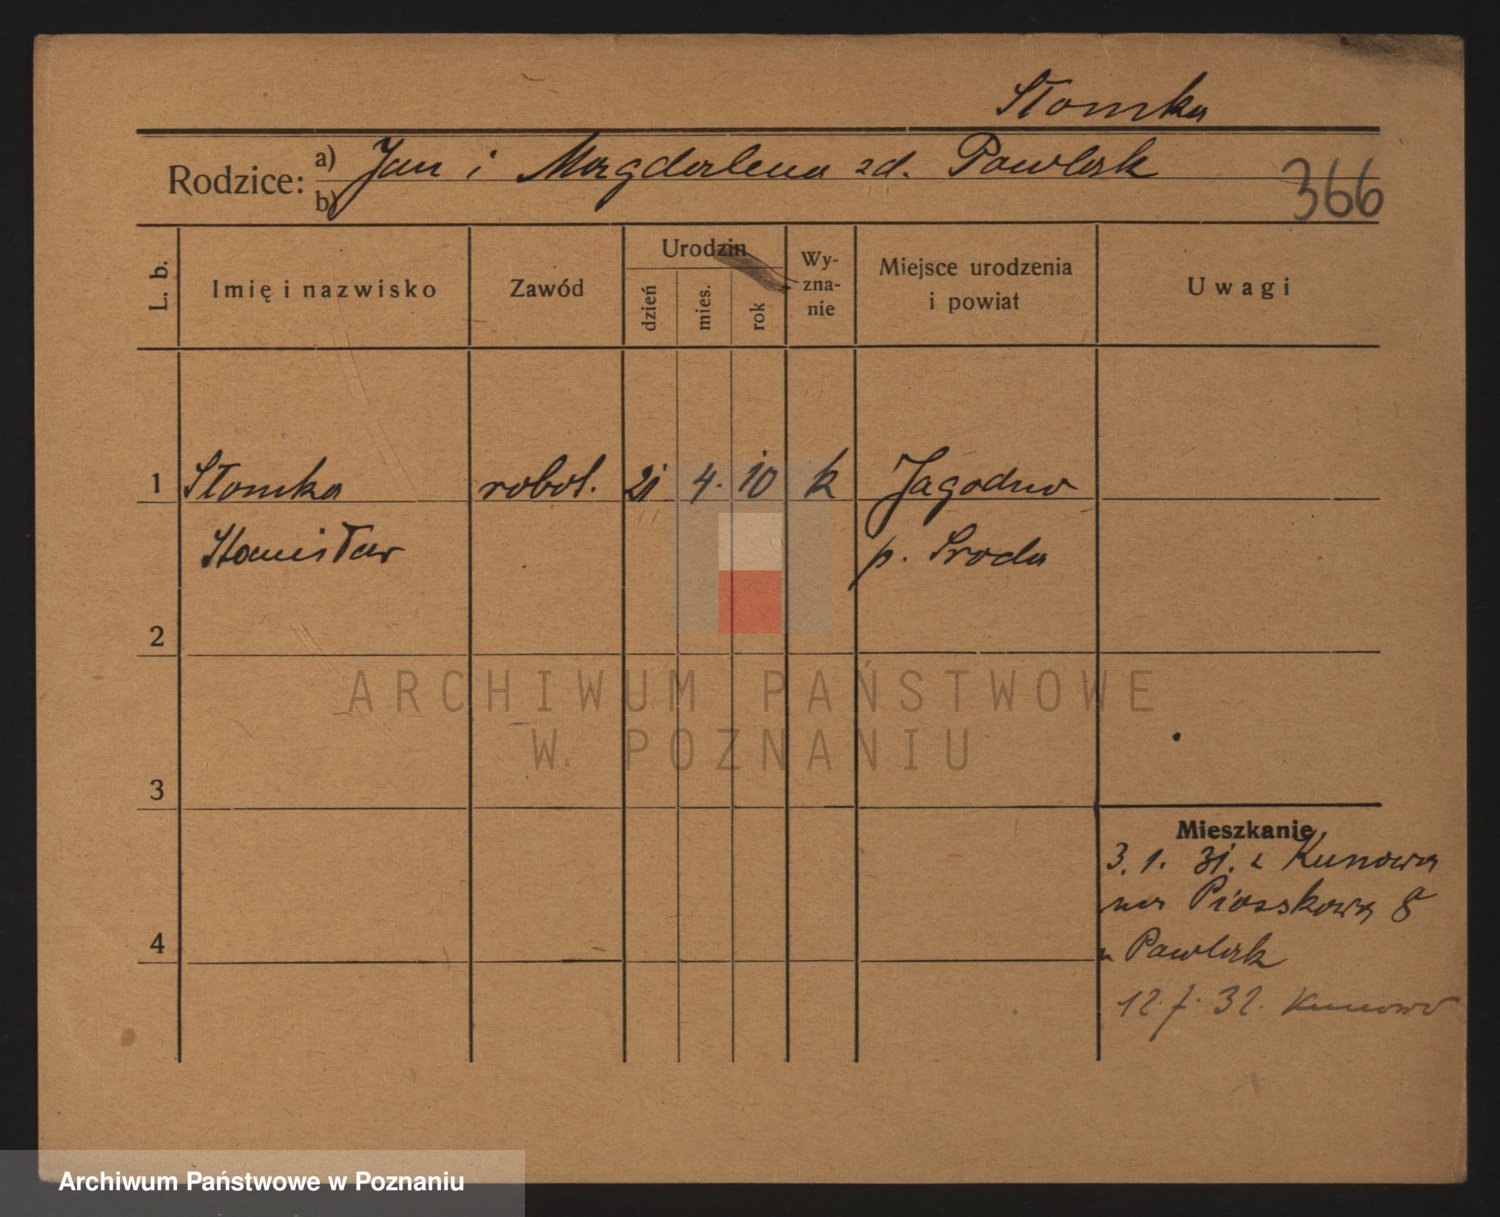 Słomka
Rodzice: a) Jan i Magdalena zd. Pawlak
b)
366
L. b.
Imię i nazwisko
Zawód
Urodzin
dzień
mies.
rok
Wy-
zna-
nie
Miejsce urodzenia
i powiat
Uwagi
1 Słomka robot. 21 4. 10 k Jagodno
Stanisław p. Sroda
2
ARCHIWUM PAŃSTWOWE
W POZNANIU
3
Mieszkanie
3. 1. 31. z Kunowa
na Piaskową 8
4
u Pawlak
12. 7. 32. Kunowo
Archiwum Państwowe w Poznaniu